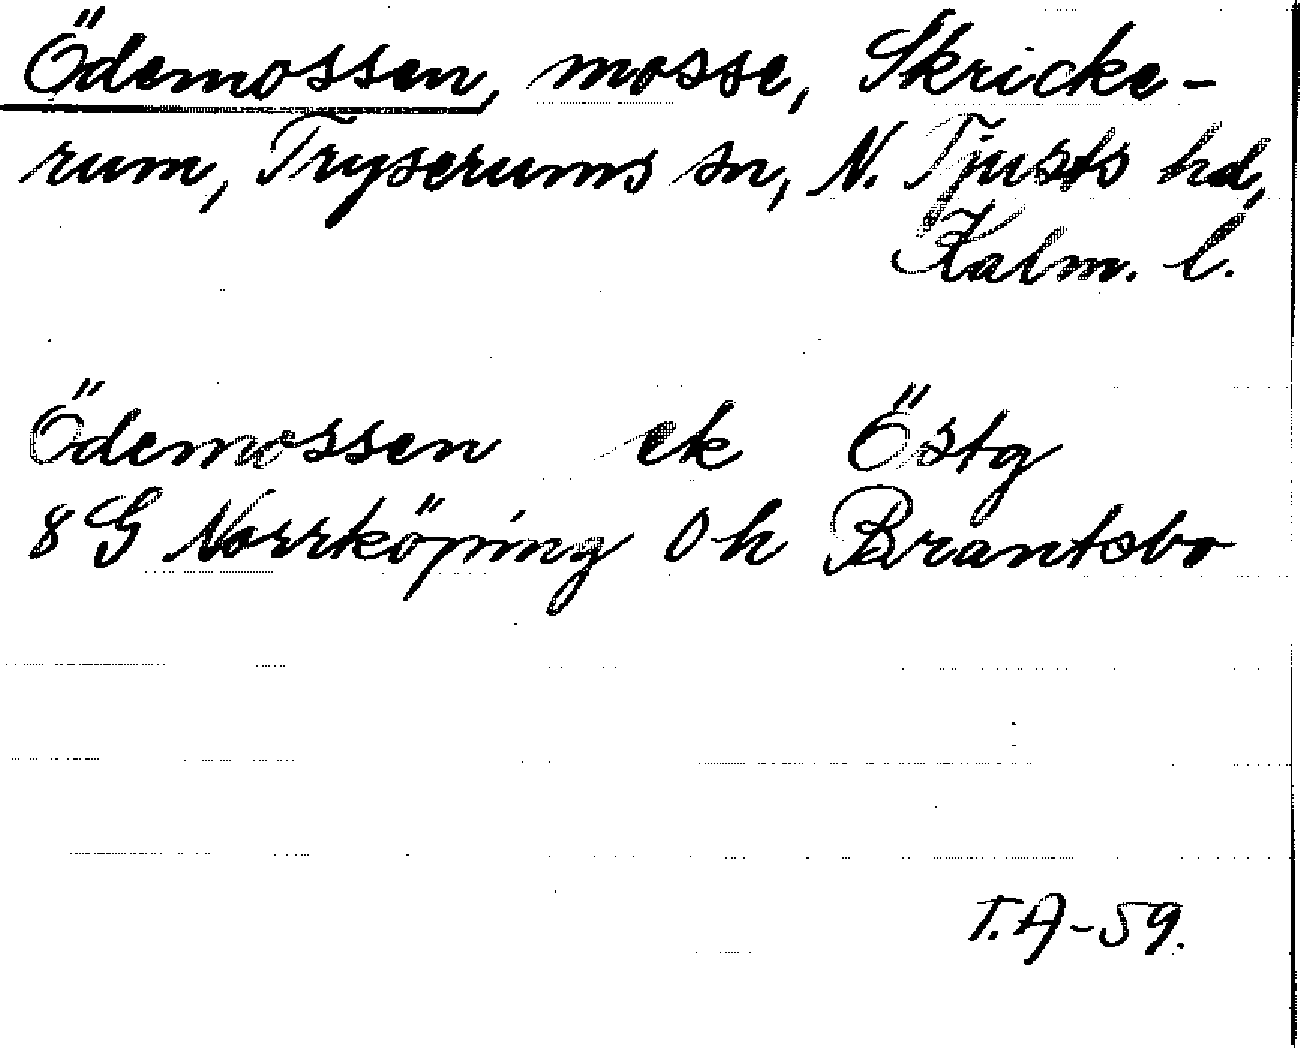 Ödemossen, mosse, Skricke-
rum, Tryserums sn, N. Tjusts hd,
Kalm. l.
Ödemossen ek Östg
8 G Norrköping Oh Brantsbo
T.A-59.